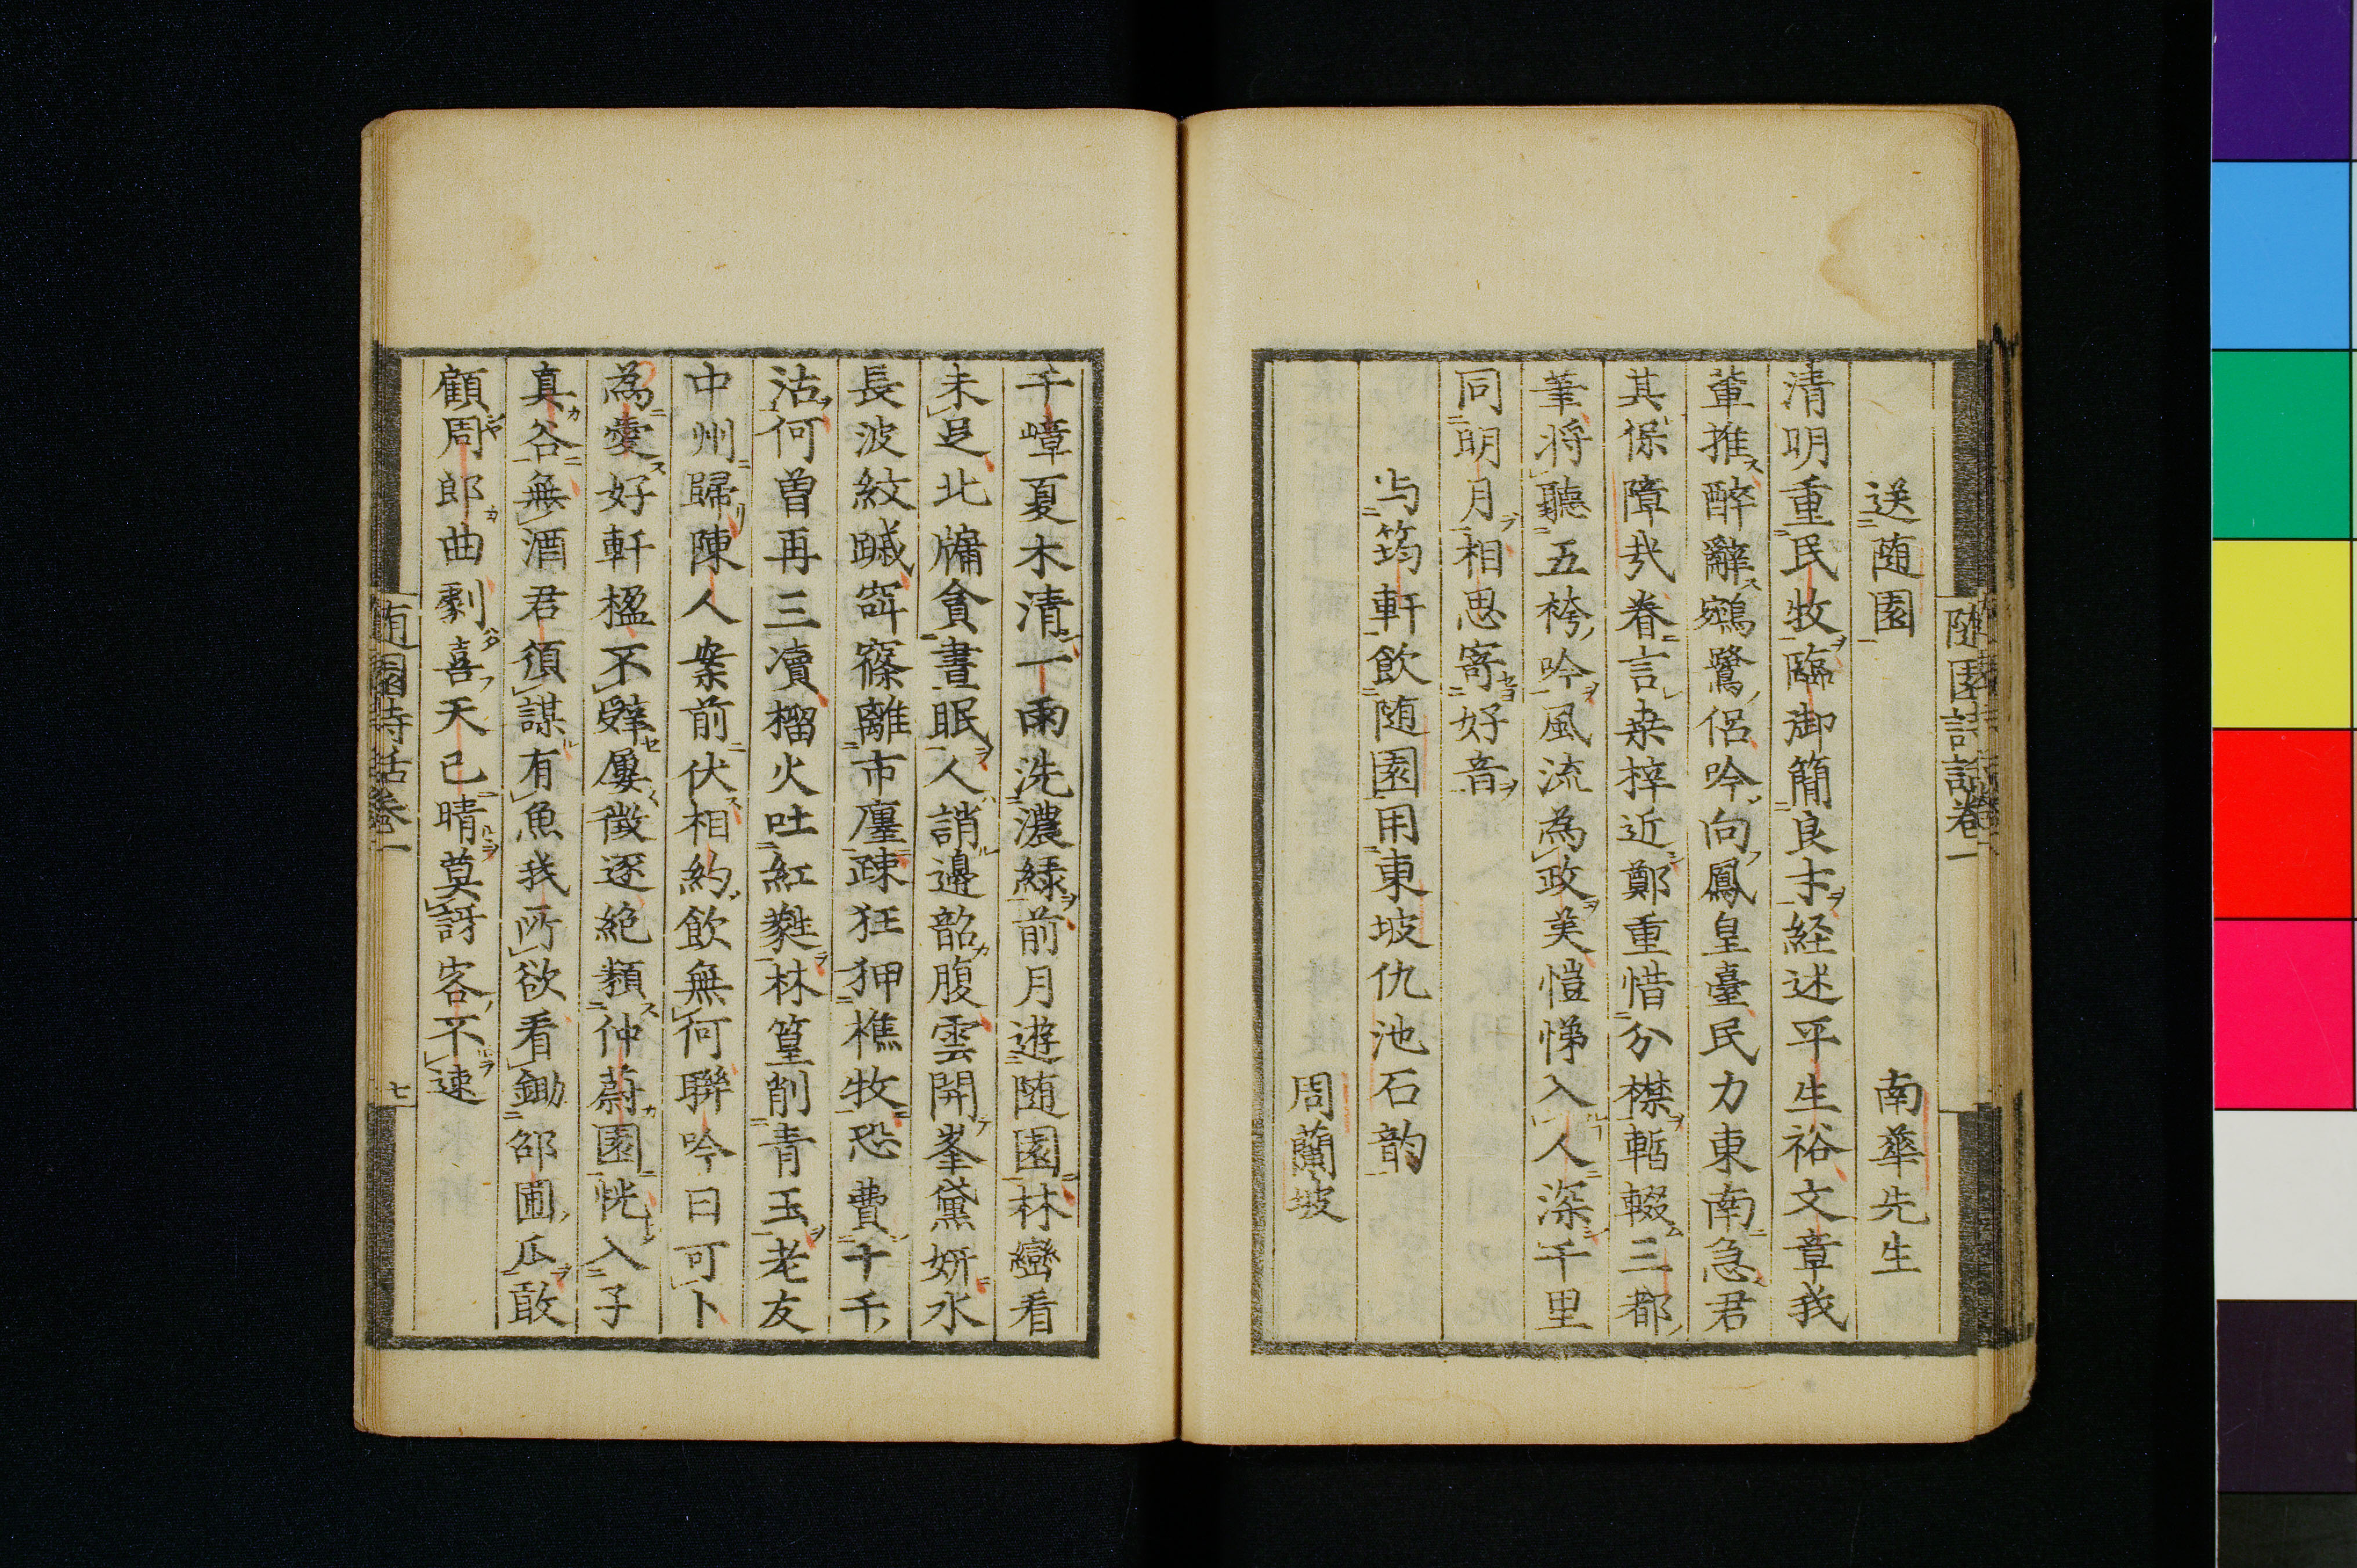 随園詩話卷一
送随園
南華先生
清明重民牧臨御簡良才経述平生裕文章我
輩推醉辭鵷鷺侶吟向鳳皇臺民力東南急君
其保障㢤眷言桒梓近鄭重惜分襟暫輟三都
筆将聽五袴吟風流為政美愷悌入人深千里
同明月相思寄好音
与筠軒飲随園用東坡仇池石韵
周蘭坡
千嶂夏木清一雨洗濃緑前月遊随園林巒看
未足北牖貪晝眠人誚邊韶腹雲開峯黛妍水
長波紋蹙窂篠離市廛疎狂狎樵牧恐費十千
沽何曽再三凟榴火吐紅㽔林篁削青玉老友
中州歸陳人案前伏相約飲無何聯吟日可卜
為愛好軒楹不辤屢徴逐絶類仲蔚園恍入子
真谷無酒君須謀有魚我所欲看鋤邵圃瓜敢
顧周郎曲劇喜天已晴莫訝客不速
随園詩話卷一
七